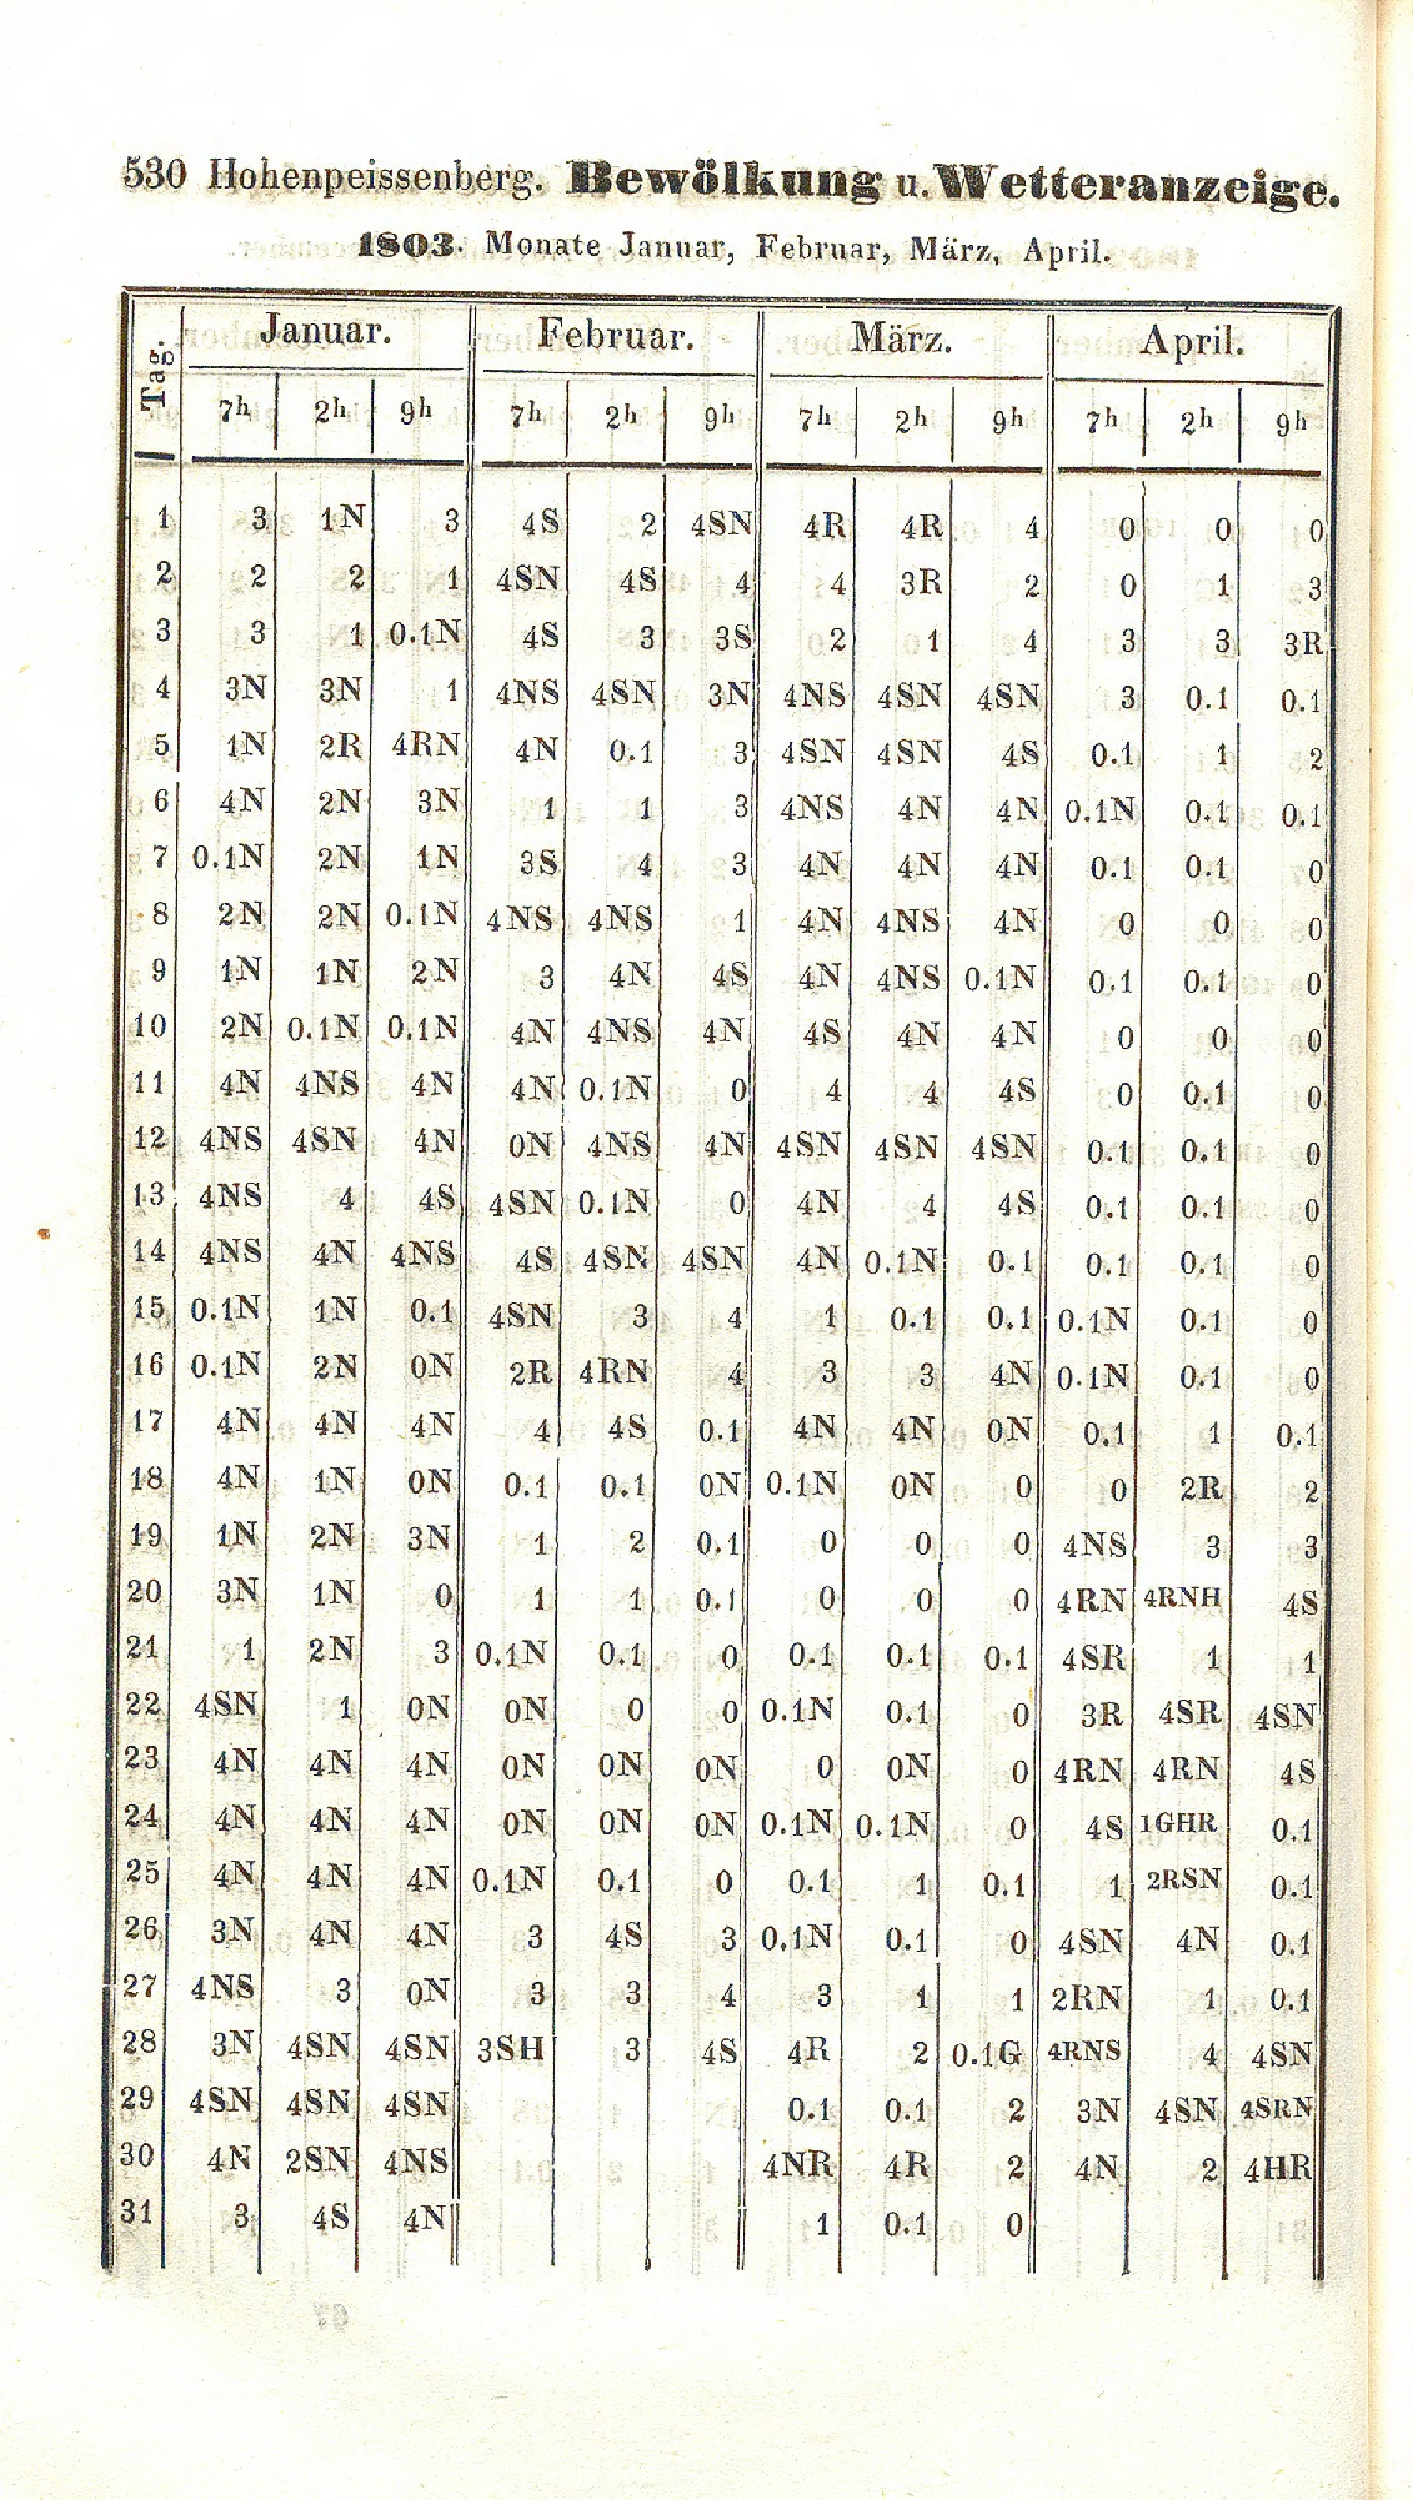 530 Hohenpeissenberg. Bewölkung u. Wetteranzeige.
1803. Monate Januar, Februar, März, April.
Tag. Januar. Februar. März. April.
7h 2h 9h 7h 2h 9h 7h 2h 9h 7h 2h 9h
1 3 1N 3 4S 2 4SN 4R 4R 4 0 0 0
2 2 2 1 4SN 4S 4 4 3R 2 0 1 3
3 3 1 0.1N 4S 3 3S 2 1 4 3 3 3R
4 3N 3N 1 4NS 4SN 3N 4NS 4SN 4SN 3 0.1 0.1
5 1N 2R 4RN 4N 0.1 3 4SN 4SN 4S 0.1 1 2
6 4N 2N 3N 1 1 3 4NS 4N 4N 0.1N 0.1 0.1
7 0.1N 2N 1N 3S 4 3 4N 4N 4N 0.1 0.1 0
8 2N 2N 0.1N 4NS 4NS 1 4N 4NS 4N 0 0 0
9 1N 1N 2N 3 4N 4S 4N 4NS 0.1N 0.1 0.1 0
10 2N 0.1N 0.1N 4N 4NS 4N 4S 4N 4N 0 0 0
11 4N 4NS 4N 4N 0.1N 0 4 4 4S 0 0.1 0
12 4NS 4SN 4N 0N 4NS 4N 4SN 4SN 4SN 0.1 0.1 0
13 4NS 4 4S 4SN 0.1N 0 4N 4 4S 0.1 0.1 0
14 4NS 4N 4NS 4S 4SN 4SN 4N 0.1N 0.1 0.1 0.1 0
15 0.1N 1N 0.1 4SN 3 4 1 0.1 0.1 0.1N 0.1 0
16 0.1N 2N 0N 2R 4RN 4 3 3 4N 0.1N 0.1 0
17 4N 4N 4N 4 4S 0.1 4N 4N 0N 0.1 1 0.1
18 4N 1N 0N 0.1 0.1 0N 0.1N 0N 0 0 2R 2
19 1N 2N 3N 1 2 0.1 0 0 0 4NS 3 3
20 3N 1N 0 1 1 0.1 0 0 0 4RN 4RNH 4S
21 1 2N 3 0.1N 0.1 0 0.1 0.1 0.1 4SR 1 1
22 4SN 1 0N 0N 0 0 0.1N 0.1 0 3R 4SR 4SN
23 4N 4N 4N 0N 0N 0N 0 0N 0 4RN 4RN 4S
24 4N 4N 4N 0N 0N 0N 0.1N 0.1N 0 4S 1GHR 0.1
25 4N 4N 4N 0.1N 0.1 0 0.1 1 0.1 1 2RSN 0.1
26 3N 4N 4N 3 4S 3 0.1N 0.1 0 4SN 4N 0.1
27 4NS 3 0N 3 3 4 3 1 1 2RN 1 0.1
28 3N 4SN 4SN 3SH 3 4S 4R 2 0.1G 4RNS 4 4SN
29 4SN 4SN 4SN 0.1 0.1 2 3N 4SN 4SRN
30 4N 2SN 4NS 4NR 4R 2 4N 2 4HR
31 3 4S 4N 1 0.1 0